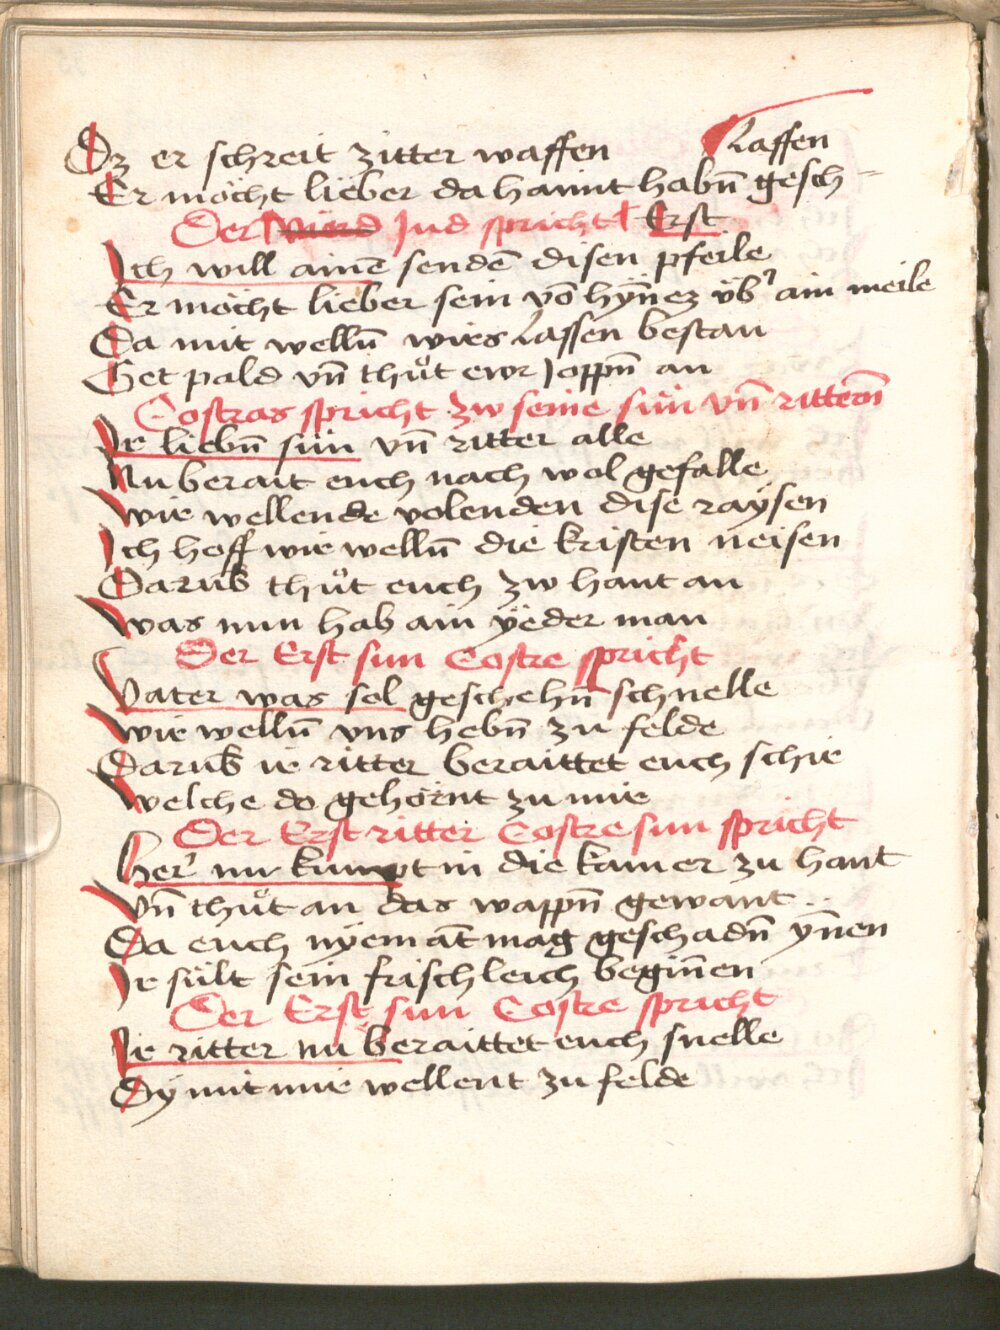 Dz er schreit zitter waffen
laffen
Er möcht lieber da haint habn̄ gesch-
Der vierd Jud spricht Erst
Ich will ainē sendē disen pfeile
Er möcht lieber sein vō hyn̄ez üb' ain meile
Da mit welln̄ wirs lassen bestan
Het pald vn̄ thuͦt ewr Joppn̄ an
Costras spricht zw seine sün vn̄ rittern̄
Ir liebn̄ sün vn̄ ritter alle
Nu berait euch nach wol gefalle
Wir wellende volenden dise raÿsen
Ich hoff wir welln̄ die kristen neisen
Darūb thuͦt euch zw hant an
Was nun hab ain ÿeder man
Der Erst sun Costre spricht
Vater was sol geschehn̄ schnelle
Wir welln̄ vns hebn̄ zu felde
Darūb ir ritter beraittet euch schir
Welche do gehörnt zu mir
Der Erst ritter Costre sun spricht
Her' nu kumpt in die kamer zu hant
Vn̄ thuͦt an das wappn̄ gewant
Da euch nyemāt mag geschadn̄ yn̄en
Ir sült sein frischleich begin̄en
Der Erst sun Costre spricht
Ir ritter nu beraittet euch snelle
Dÿ mit mir wellent zu felde